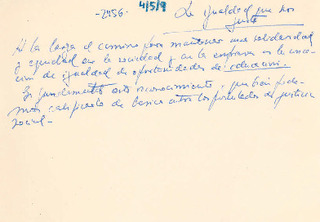 -2956-
4/5/9
La igualdad que nos
justa
A la larga el camino para mantener una solidaridad
y equidad en la sociedad y en la empresa es la
de igualdad de oportunidades de educación.
Es fundamental este reconocimiento, que bien pode-
mos calificarlo de básico entre los postulados de justicia
social.-